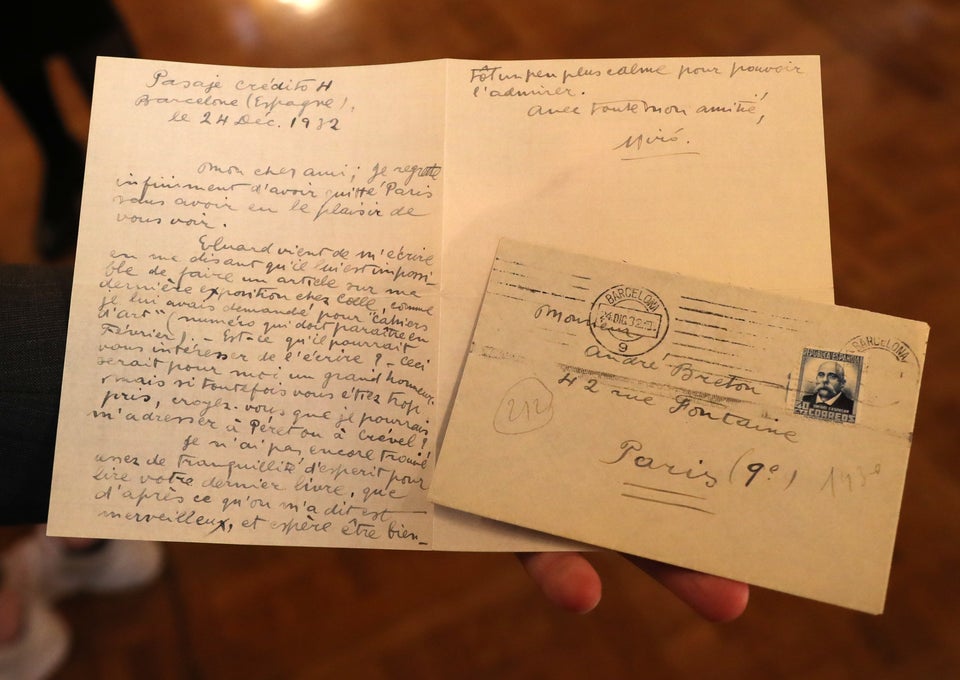 Pasaje Crédito 4
Barcelone (Espagne).
le 24 Déc. 1932
Mon cher ami; je regrette
infiniment d'avoir quitté Paris
sans avoir eu le plaisir de
vous voir.
Eluard vient de m'écrire
en me disant qu'il lui est impossi-
ble de faire un article sur ma
dernière exposition chez Colle, comme
je lui avais demandé pour "Cahiers
d'art" (numéro qui doit paraître en
Février). - Est-ce qu'il pourrait
vous intéresser de l'écrire? - Ceci
serait pour moi un grand honneur,
mais si toutefois vous étiez trop
pris, croyez-vous que je pourrais
m'adresser à Péret ou à Crével?
Je n'ai pas encore trouvé
assez de tranquillité d'esperit pour
lire votre dernier livre, que
d'après ce qu'on m'a dit est
merveilleux, et espère être bien-
tôt un peu plus calme pour pouvoir
l'admirer.
Avec toute mon amitié,
Miró.
BARCELONA
DIC. 32
9
BARCELONA
REPUBLICA ESPAÑOLA
40 CORREOS
Monsieur
André Breton
42 rue Fontaine
Paris (9e)
212
193